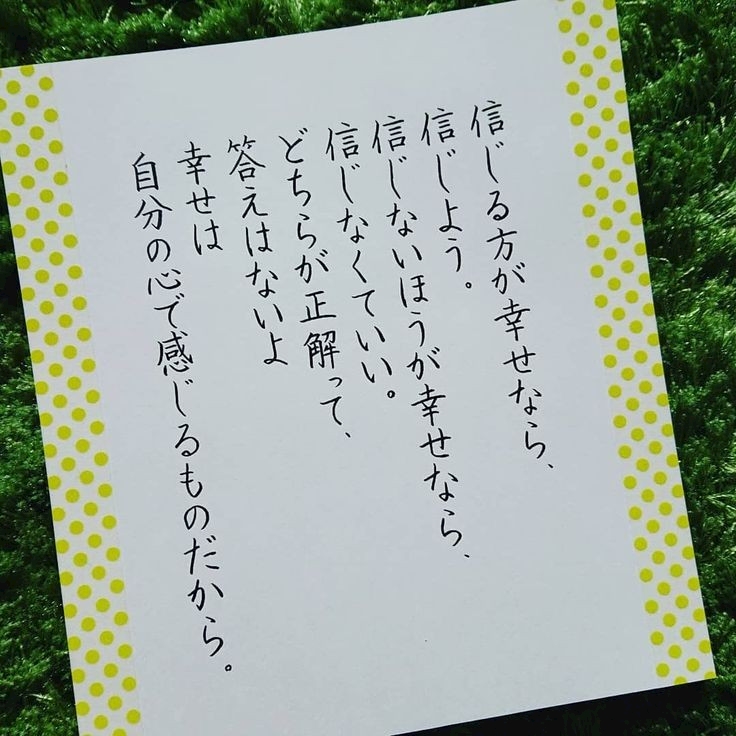 信じる方が幸せなら、
信じよう。
信じないほうが幸せなら、
信じなくていい。
どちらが正解って、
答えはないよ
幸せは
自分の心で感じるものだから。